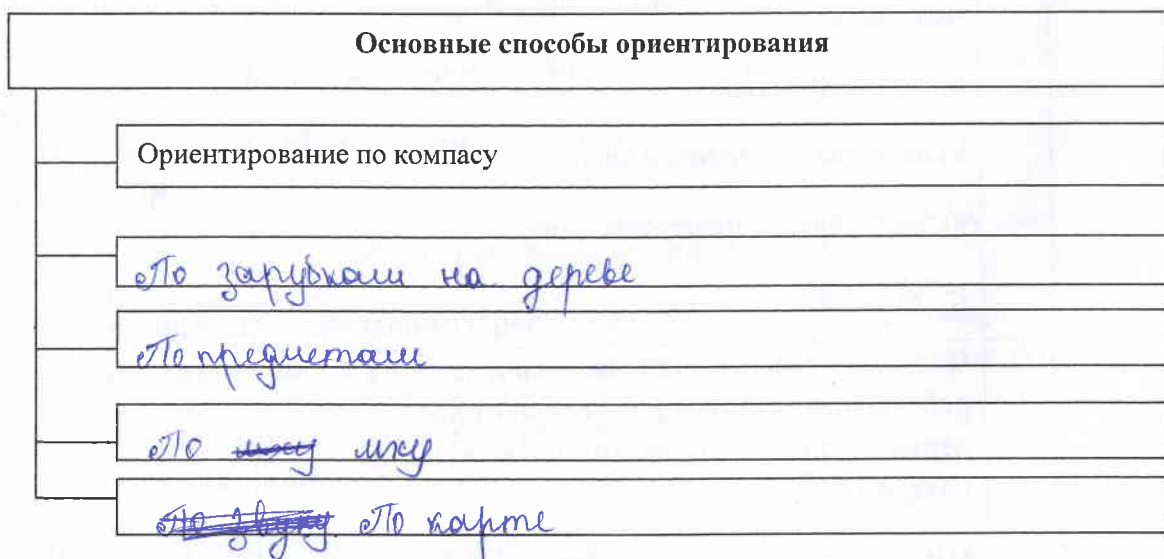 Основные способы ориентирования
Ориентирование по компасу
По зарубкам на дереве
По предметам
По мху мху
По звуку По карте